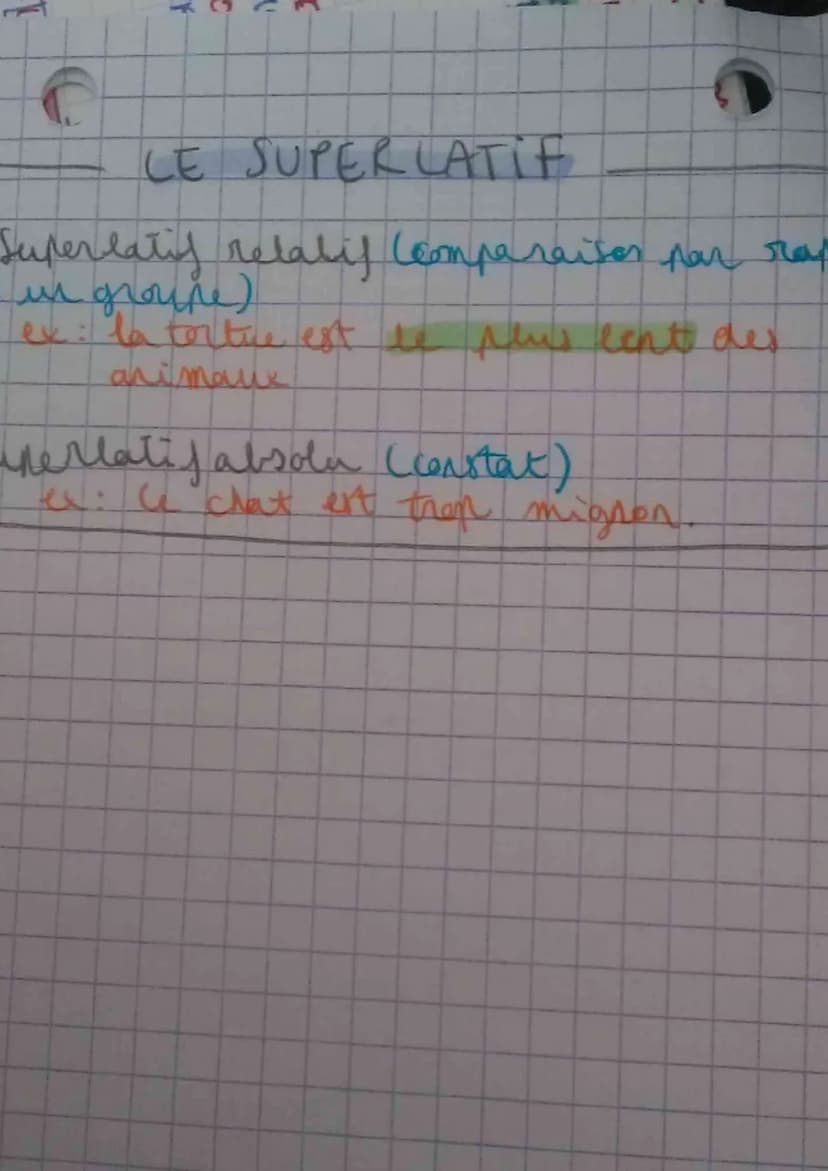 LE SUPERLATIF
Superlatif relatif (comparaison par rap
un groupe)
ex: la tortue est le plus lent des
animaux
uperlatif absolu (constat)
ex: Le chat est trop mignon.